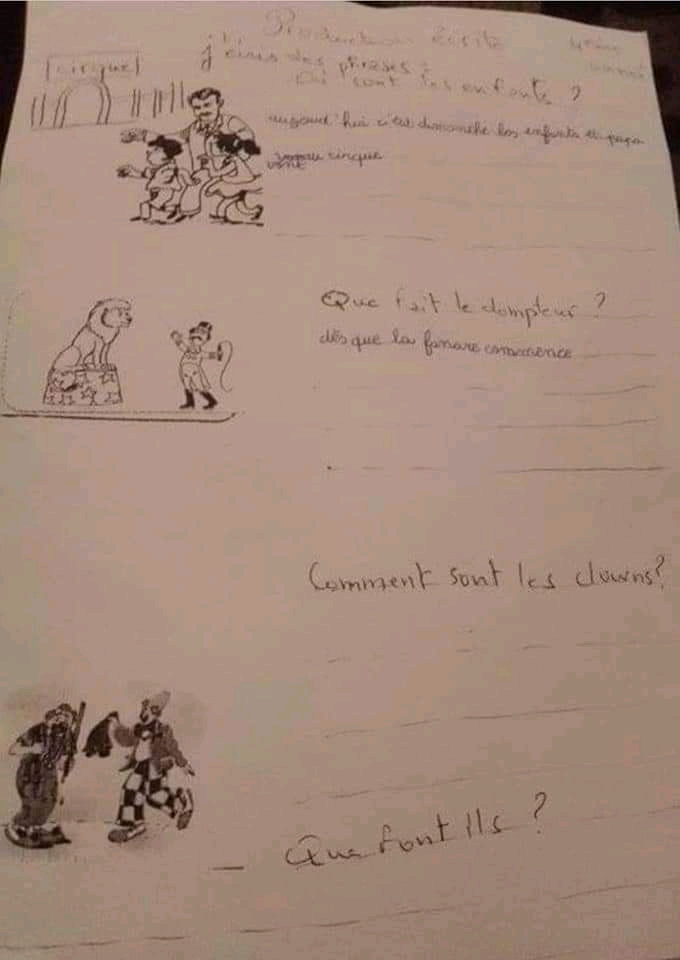 Production écrite
4ème année
[cirque]
j'écris des phrases :
Où sont les enfants ?
aujourd'hui c'est dimanche les enfants et papa
vont au cirque
Que fait le dompteur ?
dès que la fanare commence
Comment sont les clowns ?
Que font Ils ?